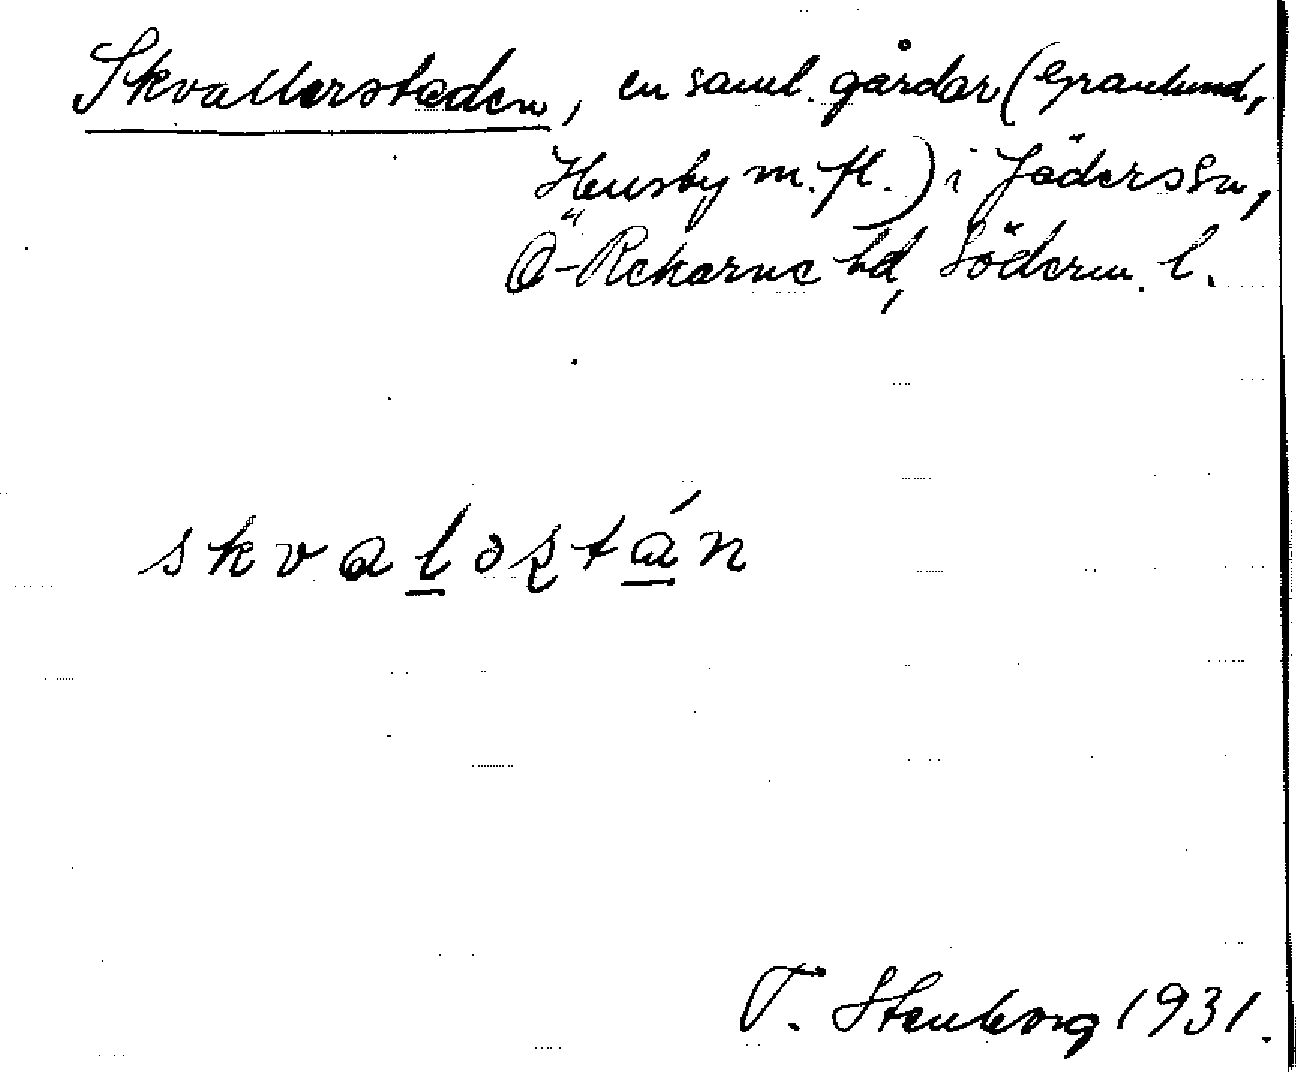 Skvallerstaden, en saml. gårdar (Granlund,
Husby m. fl.) i Jäders sn,
Ö-Rekarne hd, Söderm. l.
skvaləʂtán
T. Stenborg 1931.